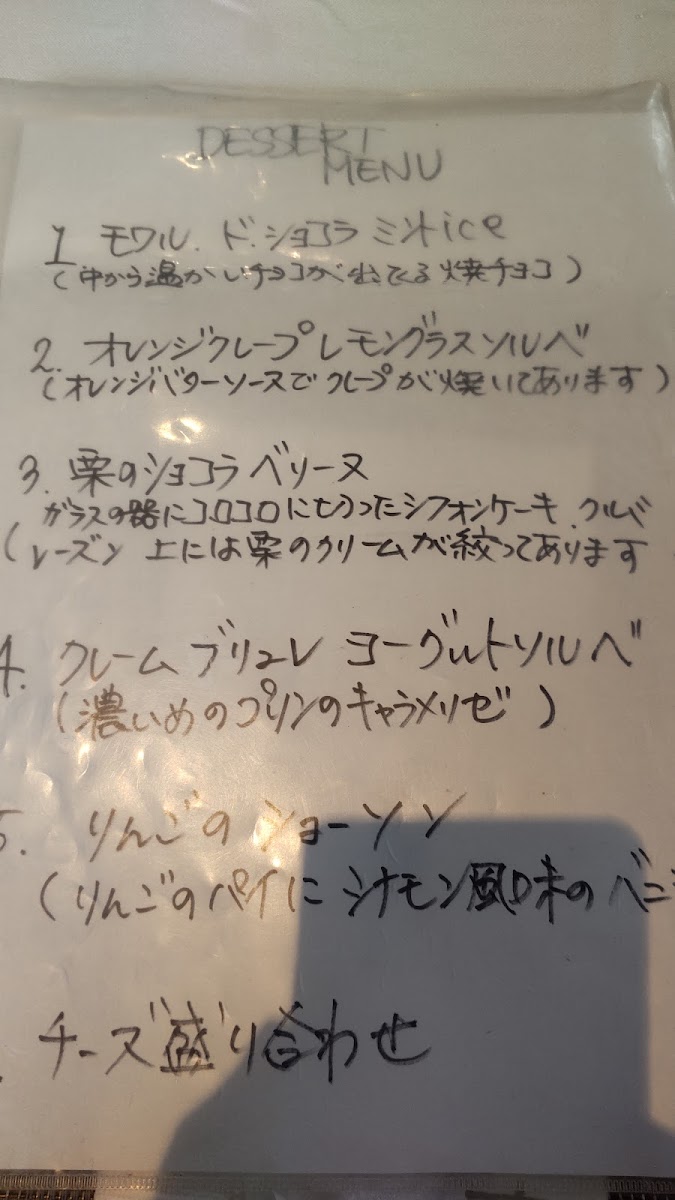 DESSERT
MENU
1 モワル.ド.ショコラ ミントice
(中から温かいチョコが出てくる焼チョコ)
2. オレンジクレープレモングラスソルベ
(オレンジバターソースでクレープが焼いてあります)
3. 栗のショコラベリーヌ
ガラスの器にコロコロにもりつたシフォンケーキ.クルミ
(レーズン 上には栗のクリームが絞ってあります
4. クレームブリュレ ヨーグルトソルベ
(濃いめのプリンのキャラメリゼ)
5. りんごのショーソン
(りんごのパイにシナモン風味のバニ
チーズ盛り合わせ